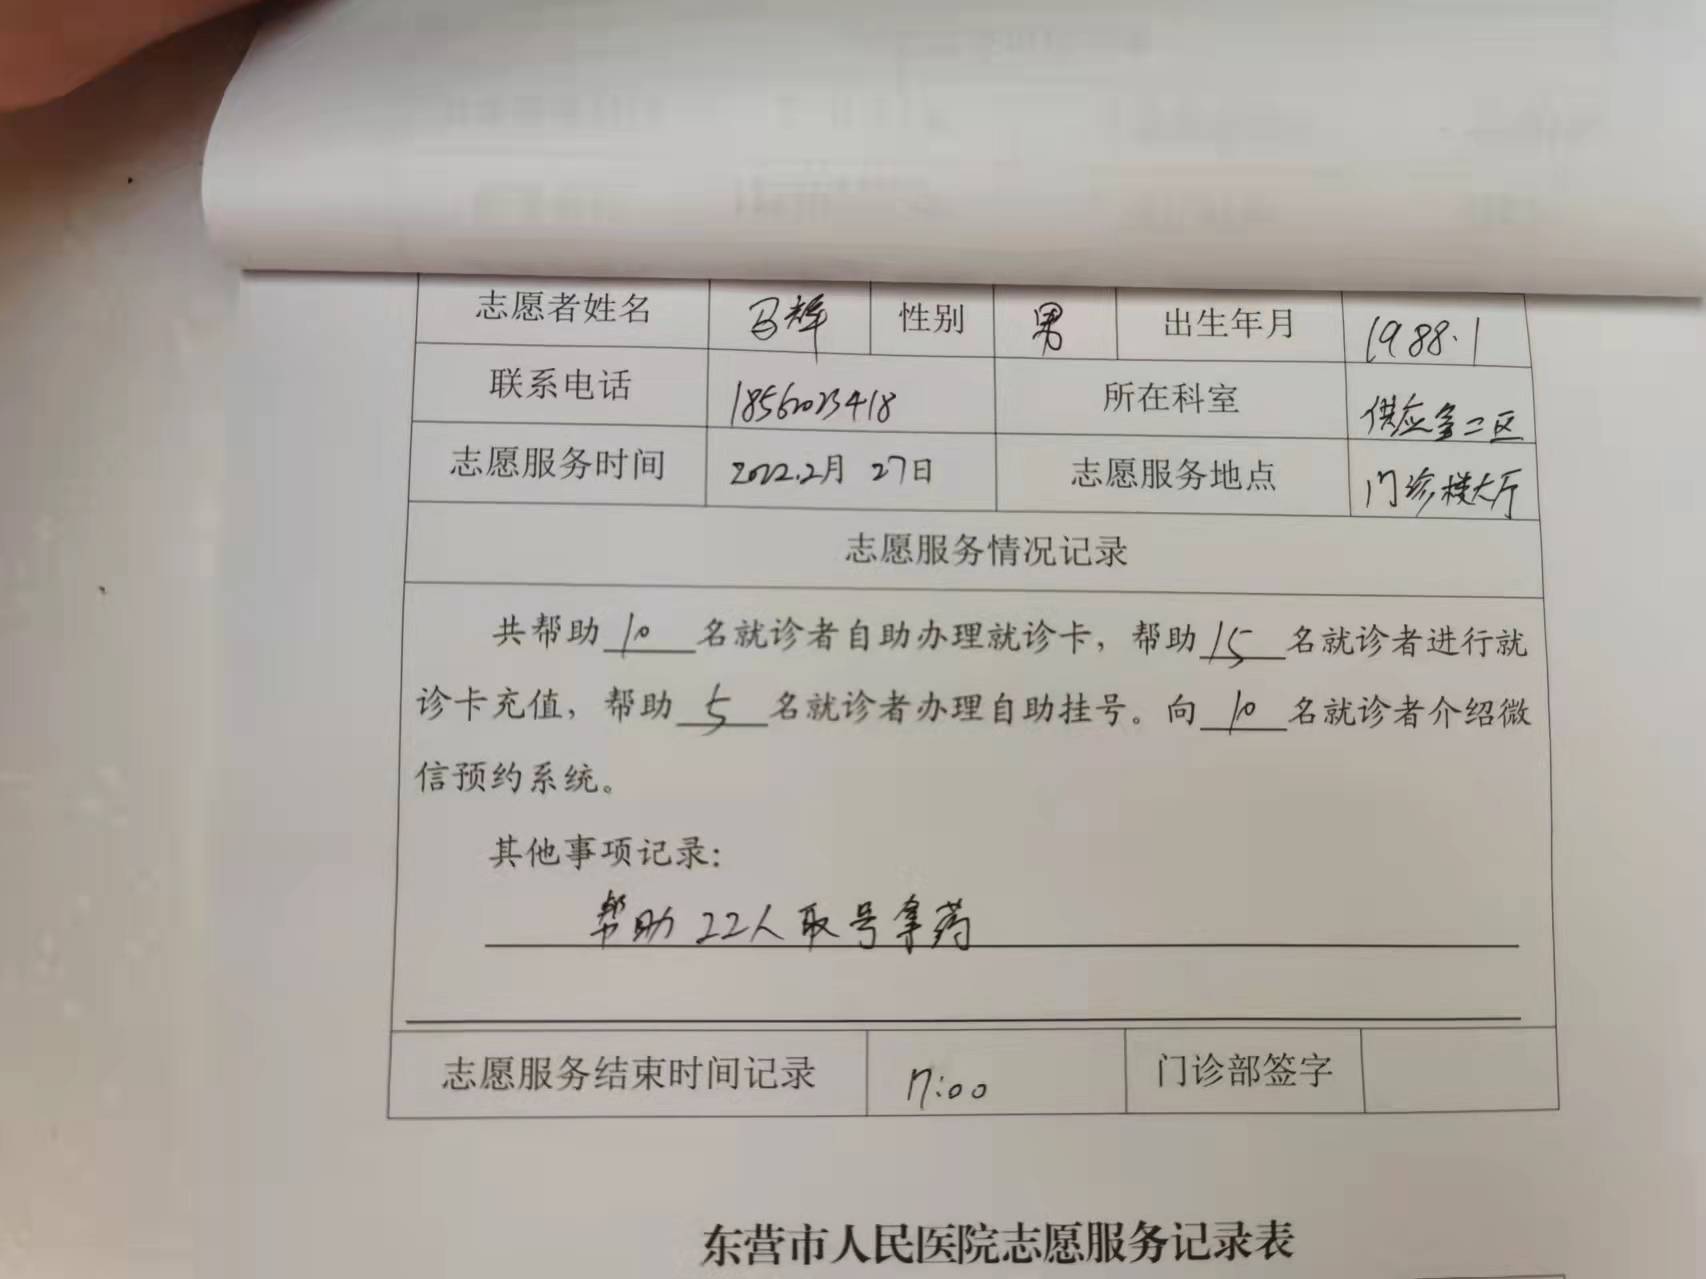 志愿者姓名 马辉 性别 男 出生年月 1988.1
联系电话 所在科室 供应室二区
志愿服务时间 2022.2月 27日 志愿服务地点 门诊楼大厅
志愿服务情况记录
共帮助10名就诊者自助办理就诊卡，帮助15名就诊者进行就
诊卡充值，帮助5名就诊者办理自助挂号。向10名就诊者介绍微
信预约系统。
其他事项记录：
帮助22人取号拿药
志愿服务结束时间记录 17:00 门诊部签字
东营市人民医院志愿服务记录表